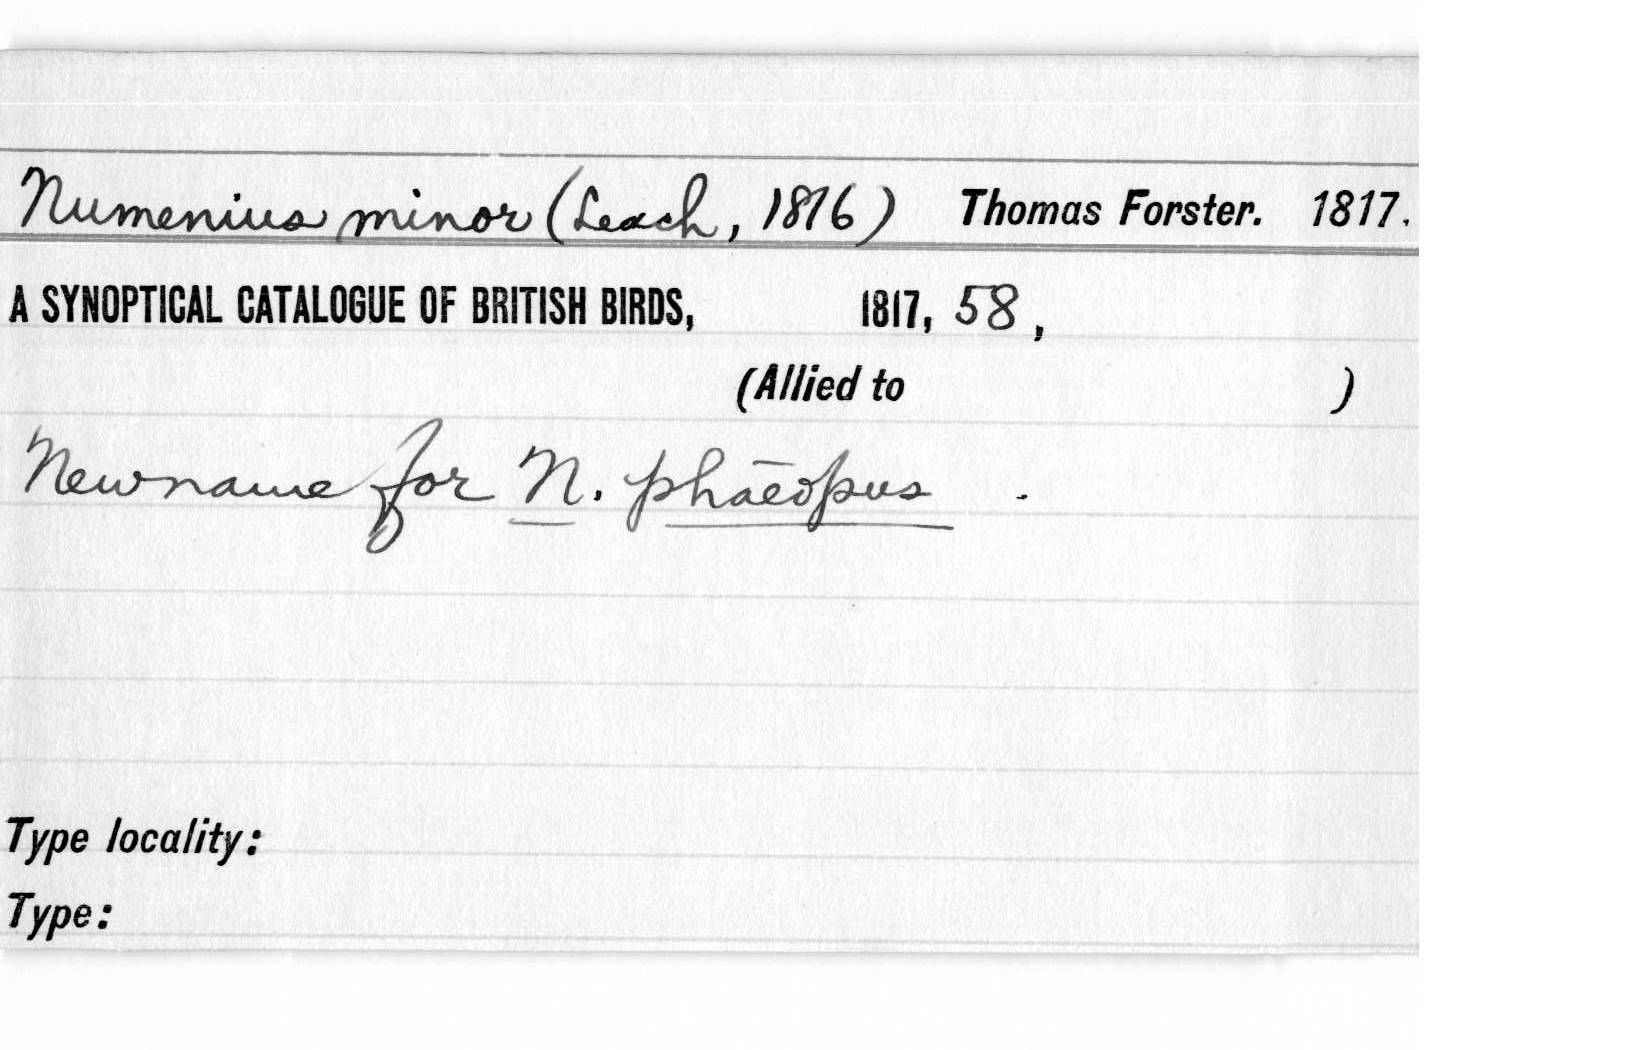 Numenius minor (Leach, 1816) Thomas Forster. 1817.
A SYNOPTICAL CATALOGUE OF BRITISH BIRDS, 1817, 58,
(Allied to )
New name for N. phaeopus .
Type locality:
Type: